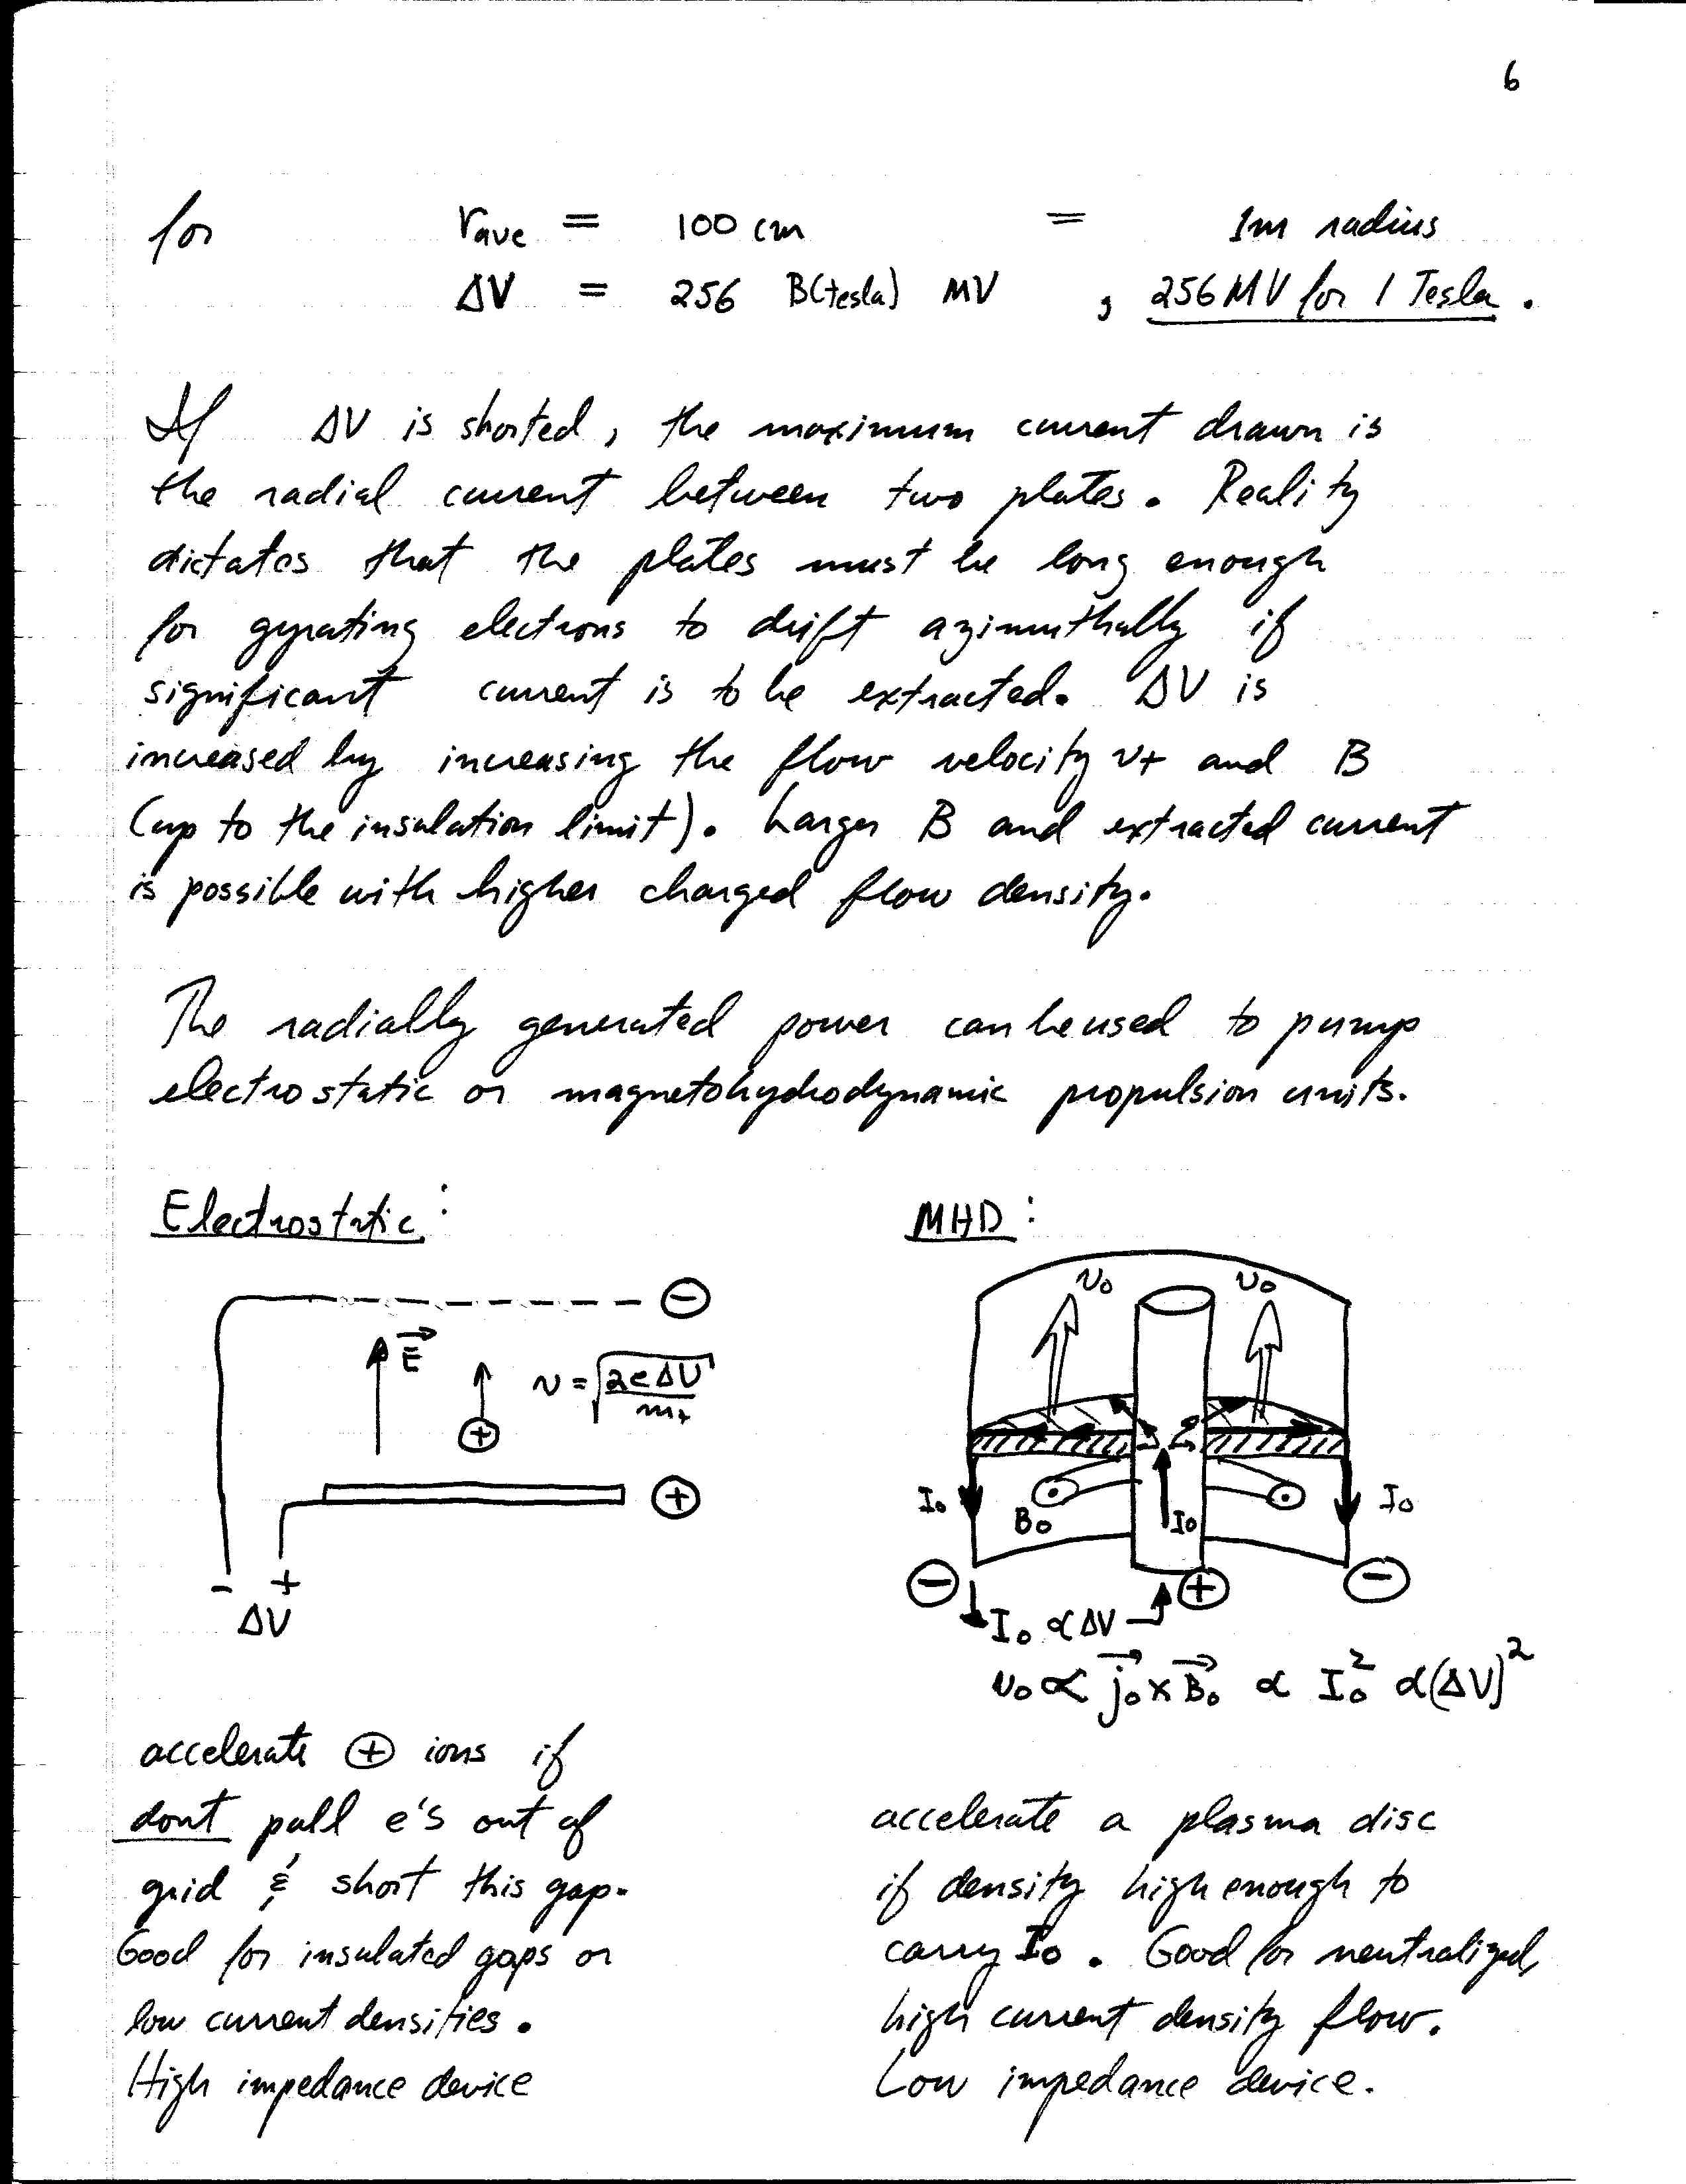 6
for r_ave = 100 cm = 1m radius
ΔV = 256 B(tesla) MV , 256 MV for 1 Tesla .
If ΔV is shorted, the maximum current drawn is
the radial current between two plates. Reality
dictates that the plates must be long enough
for gyrating electrons to drift azimuthally if
significant current is to be extracted. ΔV is
increased by increasing the flow velocity v+ and B
(up to the insulation limit). Larger B and extracted current
is possible with higher charged flow density.
The radially generated power can be used to pump
electrostatic or magnetohydrodynamic propulsion units.
Electrostatic:
⊖
E⃗
v = √(2eΔV/m₊)
⊕
⊕
- +
ΔV
accelerate ⊕ ions if
dont pull e's out of
grid & short this gap.
Good for insulated gaps or
low current densities.
High impedance device
MHD:
v₀ v₀
I₀ B₀ I₀ I₀
⊖ ⊕ ⊖
I₀ ∝ ΔV
v₀ ∝ j⃗₀ × B⃗₀ ∝ I₀² ∝ (ΔV)²
accelerate a plasma disc
if density high enough to
carry I₀. Good for neutralized,
high current density flow.
Low impedance device.